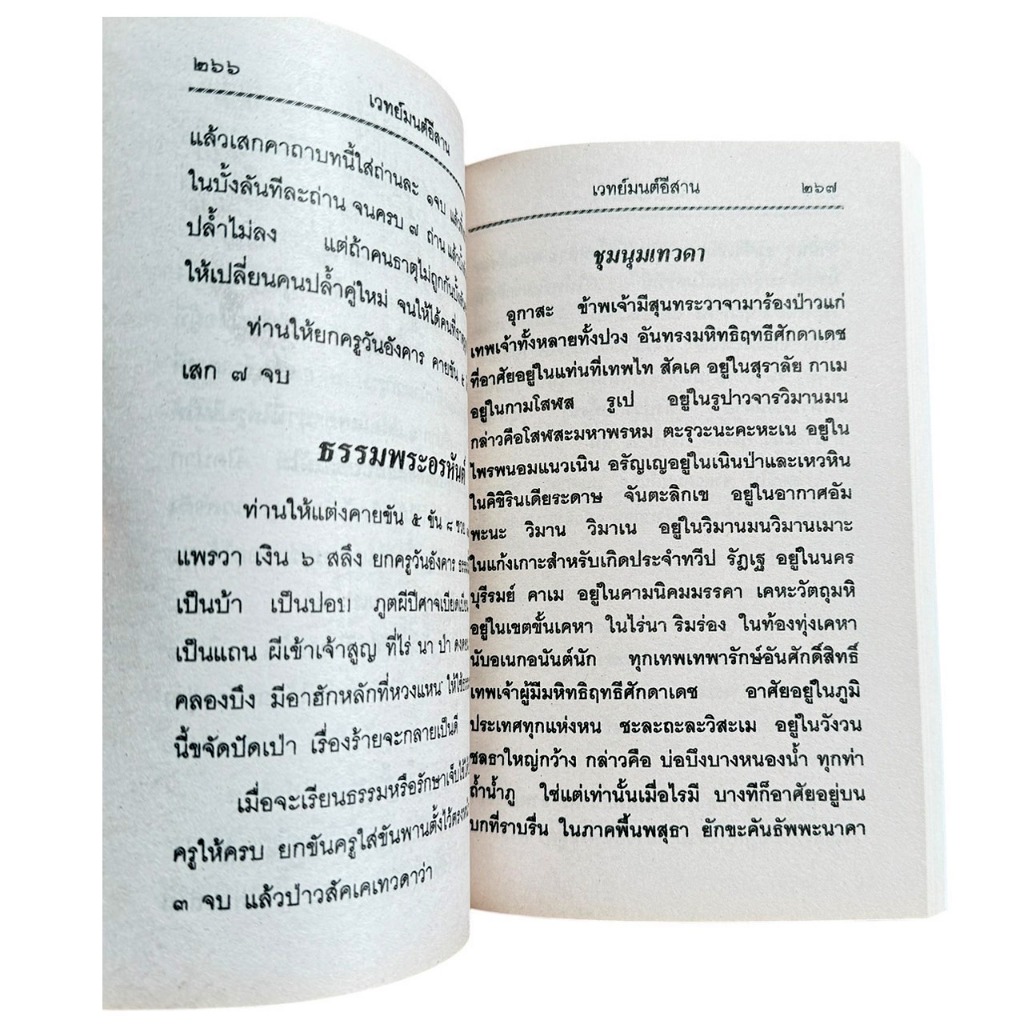 ๒๖๖
เวทย์มนต์อีสาน
แล้วเสกคาถาบทนี้ใส่ถ่านละ ๑จบ
ในบั้งลันทีละถ่าน จนครบ ๗ ถ่าน
ปล้ำไม่ลง แต่ถ้าคนธาตุไม่ถูกกัน
ให้เปลี่ยนคนปล้ำคู่ใหม่ จนให้ได้คนที่
ท่านให้ยกครูวันอังคาร คายขัน ๕
เสก ๗ จบ
ธรรมพระอรหันต์
ท่านให้แต่งคายขัน ๕ ขัน ๘
แพรวา เงิน ๖ สลึง ยกครูวันอังคาร
เป็นบ้า เป็นปอบ ภูตผีปีศาจเบียดเบียน
เป็นแถน ผีเข้าเจ้าสูญ ที่ไร่ นา ป่า
คลองบึง มีอาฮักหลักที่หวงแหน
นี้ขจัดปัดเป่า เรื่องร้ายจะกลายเป็นดี
เมื่อจะเรียนธรรมหรือรักษาเจ็บไข้
ครูให้ครบ ยกขันครูใส่ขันพานตั้งไว้
๓ จบ แล้วป่าวสัคเคเทวดาว่า
เวทย์มนต์อีสาน ๒๖๗
ชุมนุมเทวดา
อุกาสะ ข้าพเจ้ามีสุนทระวาจามาร้องป่าวแก่
เทพเจ้าทั้งหลายทั้งปวง อันทรงมหิทธิฤทธีศักดาเดช
ที่อาศัยอยู่ในแท่นที่เทพไท สัคเค อยู่ในสุราลัย กาเม
อยู่ในกามโสฬส รูเป อยู่ในรูปาวจารวิมานมน
กล่าวคือโสฬสะมหาพรหม ตะรุวะนะคะหะเน อยู่ใน
ไพรพนอมแนวเนิน อรัญเญอยู่ในเนินป่าและเหวหิน
ในคิขิรินเดียระดาษ จันตะลิกเข อยู่ในอากาศอัม
พะนะ วิมาน วิมาเน อยู่ในวิมานมนวิมานเมาะ
ในแก้งเกาะสำหรับเกิดประจำทวีป รัฏเฐ อยู่ในนคร
บุรีรมย์ คาเม อยู่ในคามนิคมมรรคา เคหะวัตถุมหิ
อยู่ในเขตขั้นเคหา ในไร่นา ริมร่อง ในท้องทุ่งเคหา
นับอเนกอนันต์นัก ทุกเทพเทพารักษ์อันศักดิ์สิทธิ์
เทพเจ้าผู้มีมหิทธิฤทธีศักดาเดช อาศัยอยู่ในภูมิ
ประเทศทุกแห่งหน ชะละถะละวิสะเม อยู่ในวังวน
ชลธาใหญ่กว้าง กล่าวคือ บ่อบึงบางหนองน้ำ ทุกท่า
ถ้ำน้ำภู ใช่แต่เท่านั้นเมื่อไรมี บางทีก็อาศัยอยู่บน
บกที่ราบรื่น ในภาคพื้นพสุธา ยักขะคันธัพพะนาคา